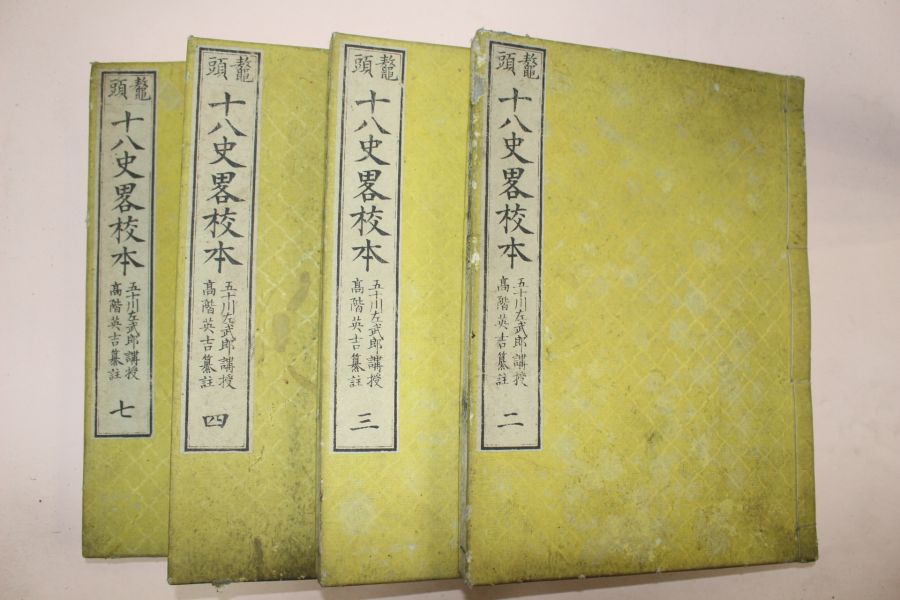 鼇頭
十八史畧校本
五十川左武郎講授
髙階英吉纂註
二
鼇頭
十八史畧校本
五十川左武郎講授
髙階英吉纂註
三
鼇頭
十八史畧校本
五十川左武郎講授
髙階英吉纂註
四
鼇頭
十八史畧校本
五十川左武郎講授
髙階英吉纂註
七